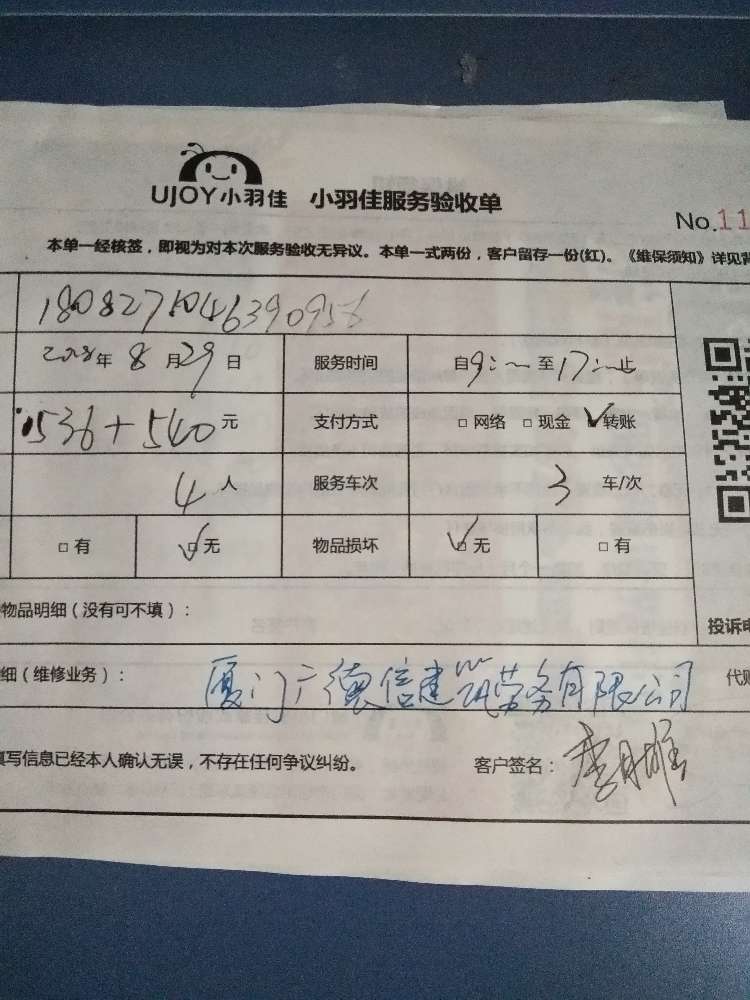 UJOY小羽佳 小羽佳服务验收单
No.11
本单一经核签，即视为对本次服务验收无异议。本单一式两份，客户留存一份(红)。《维保须知》详见背
180827104639095
2018年8月29日 服务时间 自9: 至17: 止
536+540元 支付方式 □网络 □现金 ☑转账
4人 服务车次 3车/次
□有 ☑无 物品损坏 ☑无 □有
物品明细（没有可不填）：
投诉电
细（维修业务）： 厦门广德信建筑劳务有限公司 代购
填写信息已经本人确认无误，不存在任何争议纠纷。 客户签名：